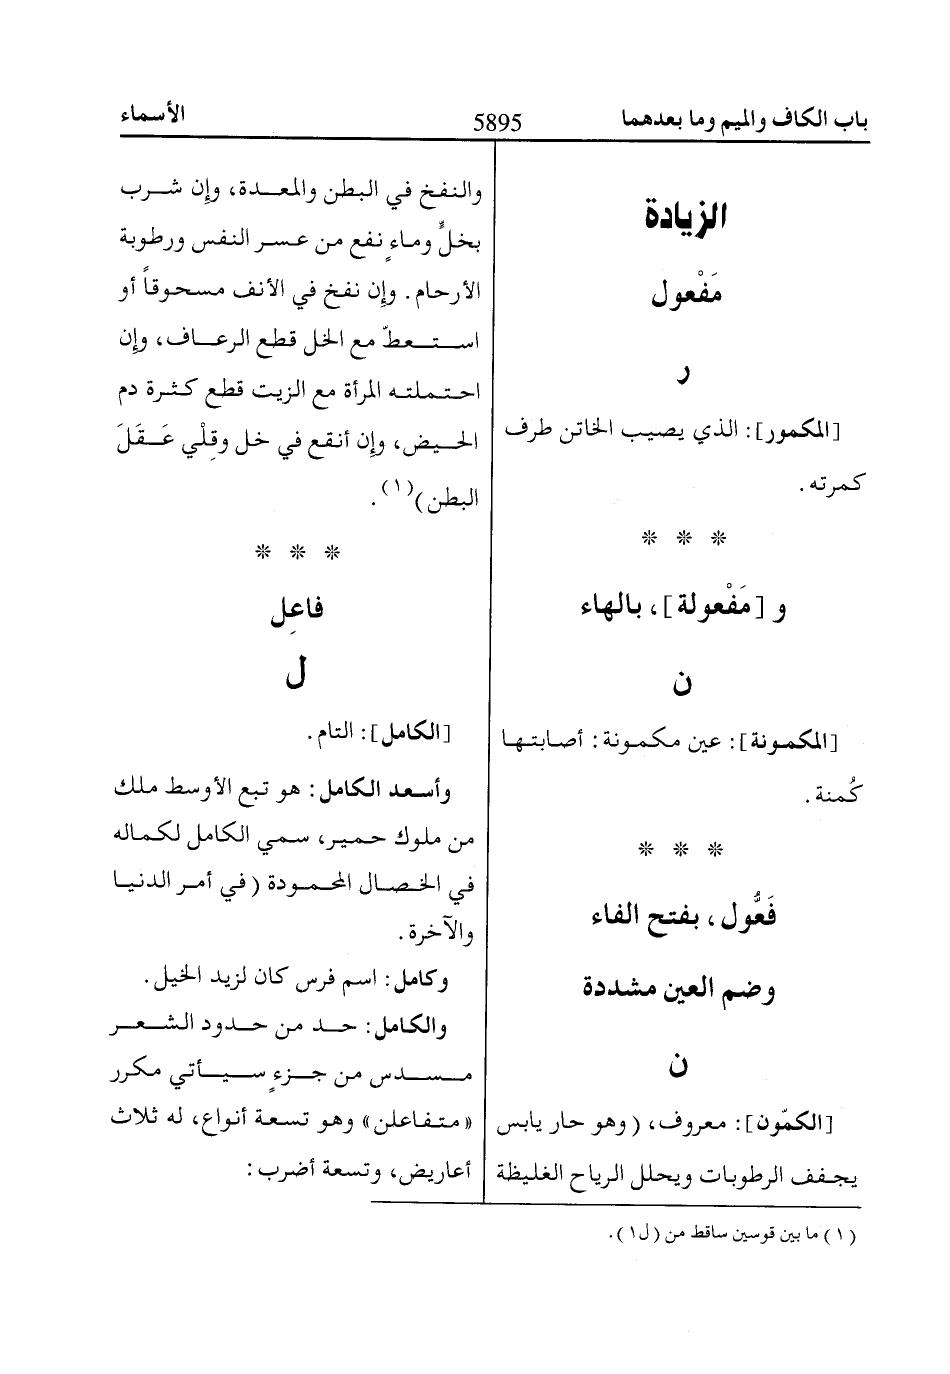 باب الكاف والميم وما بعدهما
5895
الأسماء
الزيادة
مَفْعول
ر
[المكمور]: الذي يصيب الخاتن طرف
كمرته.
* * *
و [مَفْعولة]، بالهاء
ن
[المكمونة]: عين مكمونة: أصابتها
كُمنة.
* * *
فَعُّول، بفتح الفاء
وضم العين مشددة
ن
[الكمّون]: معروف، (وهو حار يابس
يجفف الرطوبات ويحلل الرياح الغليظة
والنفخ في البطن والمعدة، وإن شرب
بخلٍّ وماءٍ نفع من عسر النفس ورطوبة
الأرحام. وإن نفخ في الأنف مسحوقاً أو
استعطّ مع الخل قطع الرعاف، وإن
احتملته المرأة مع الزيت قطع كثرة دم
الحيض، وإن أنقع في خل وقلْي عَقَلَ
البطن)(١).
* * *
فاعِل
ل
[الكامل]: التام.
وأسعد الكامل: هو تبع الأوسط ملك
من ملوك حمير، سمي الكامل لكماله
في الخصال المحمودة (في أمر الدنيا
والآخرة.
وكامل: اسم فرس كان لزيد الخيل.
والكامل: حد من حدود الشعر
مسدس من جزءٍ سيأتي مكرر
«متفاعلن» وهو تسعة أنواع، له ثلاث
أعاريض، وتسعة أضرب:
(١) ما بين قوسين ساقط من (ل١).